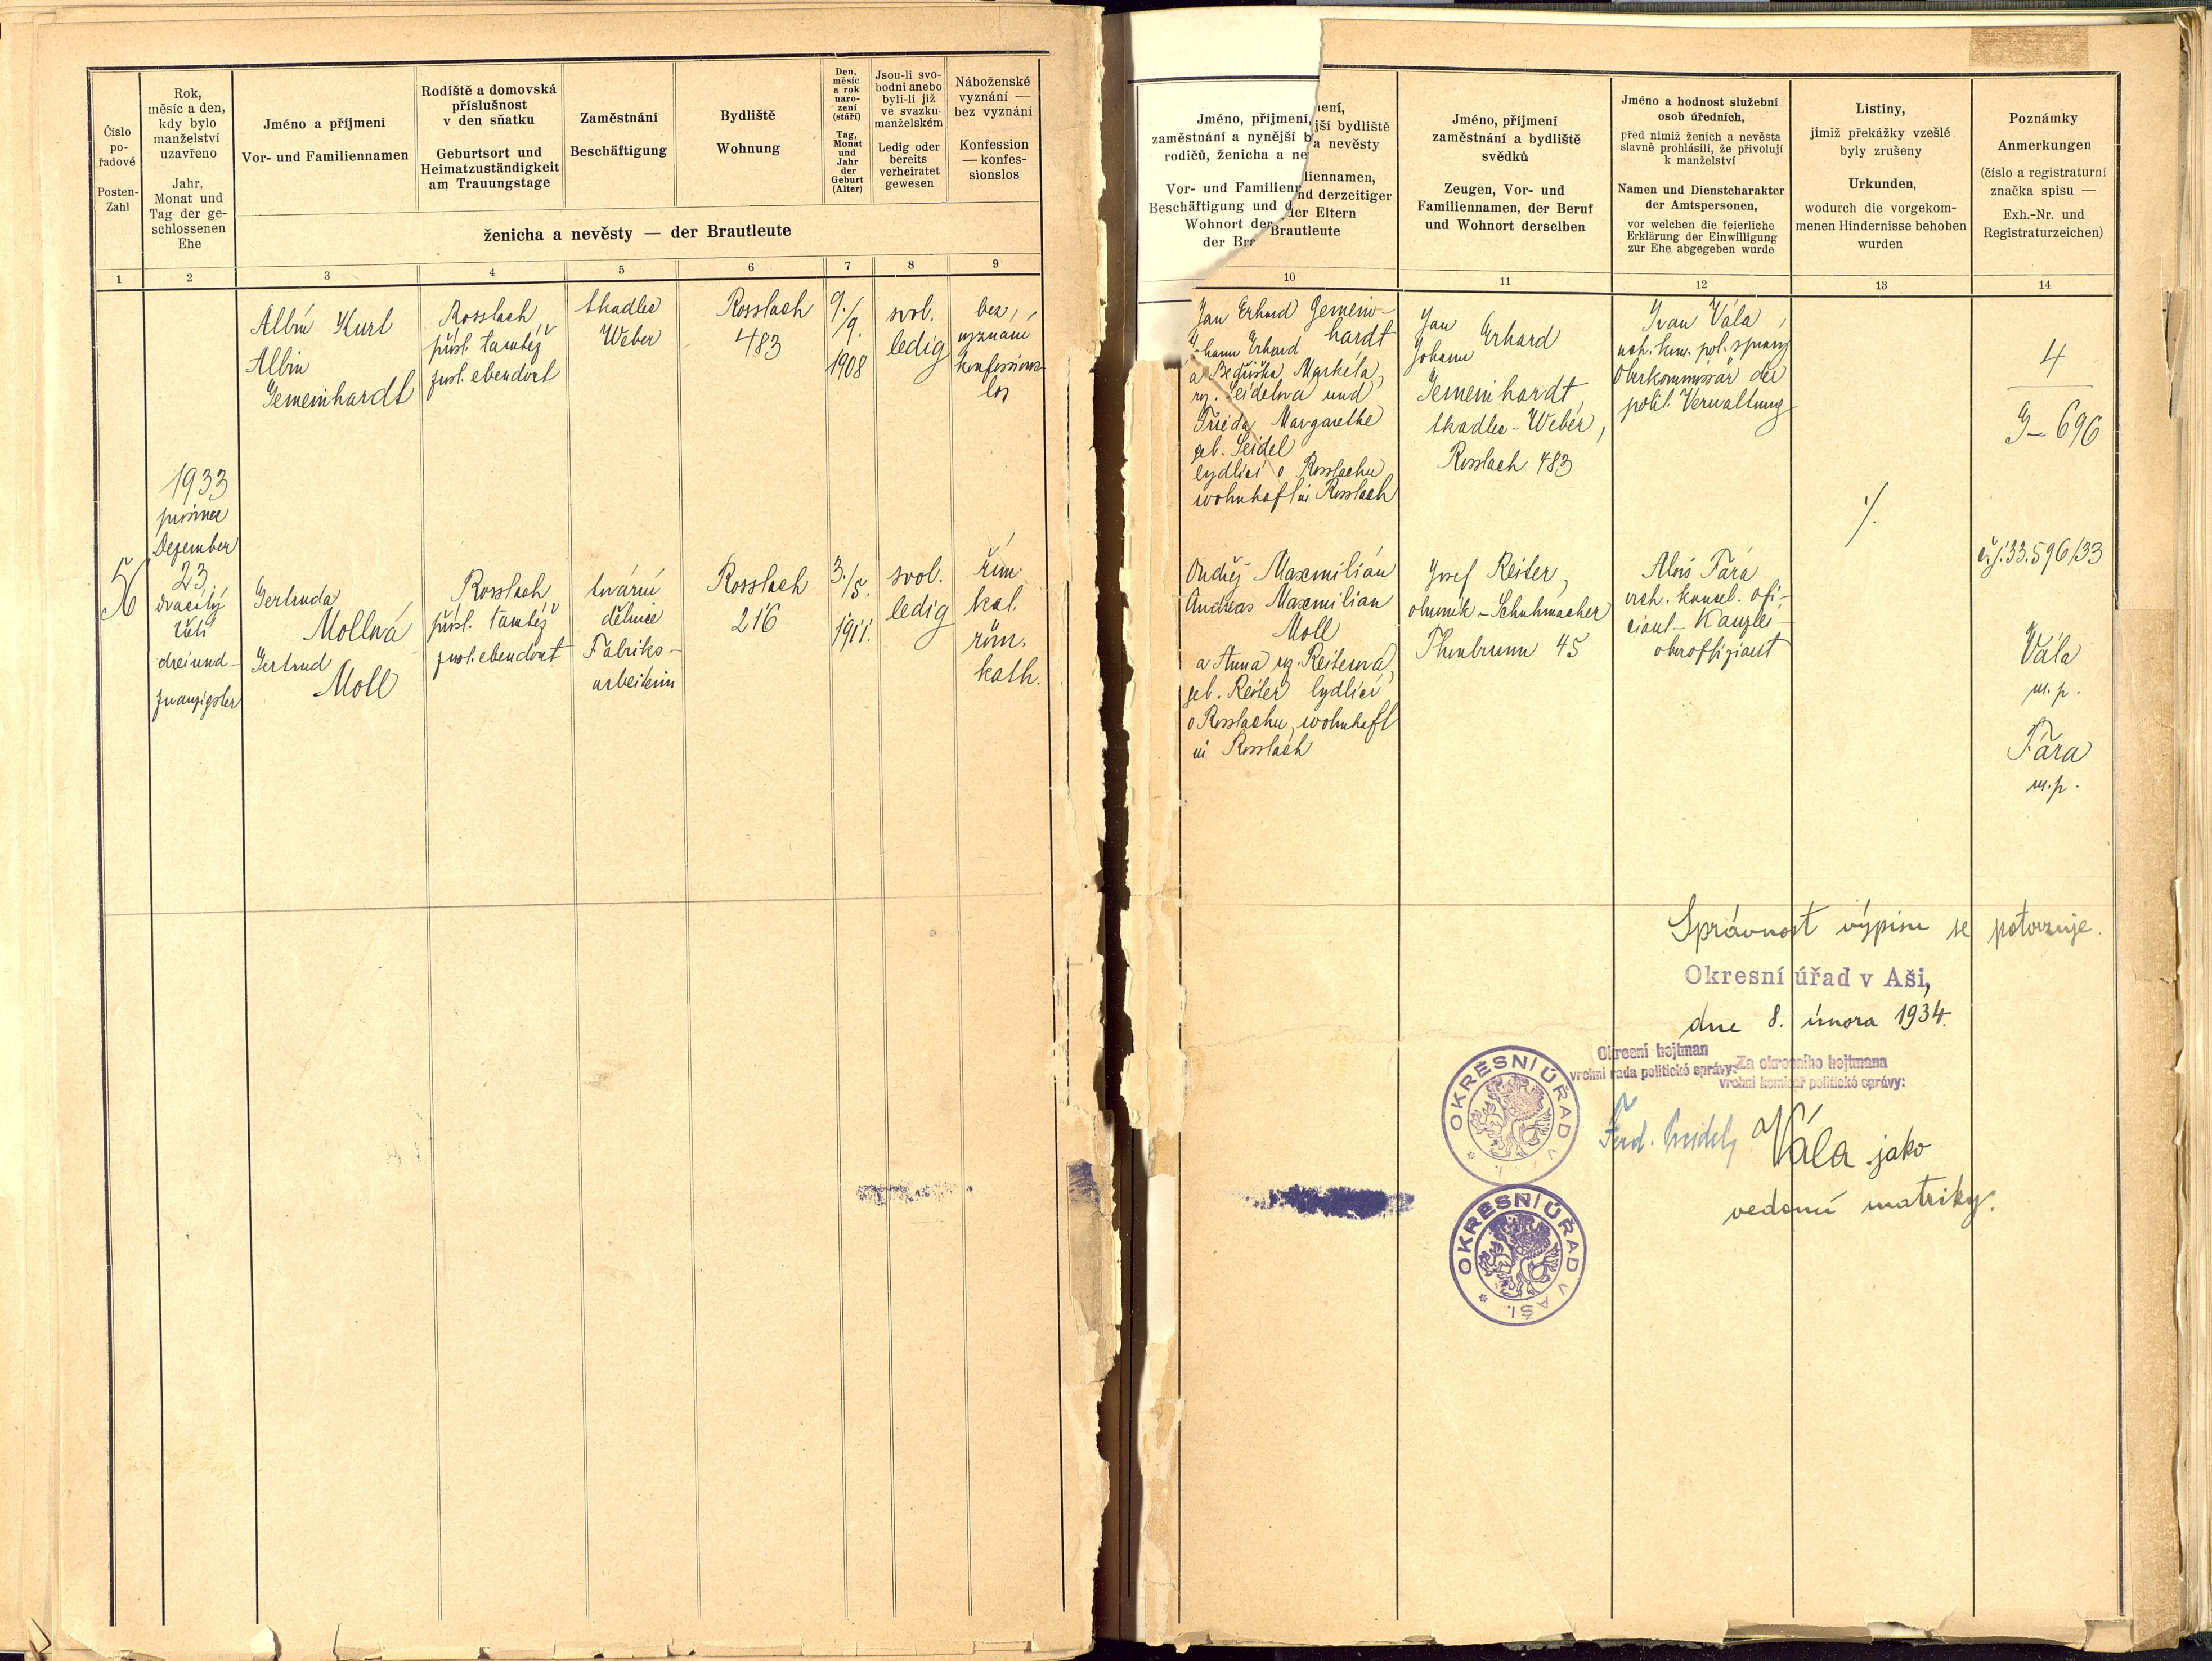 Číslo
po-
řadové
Posten-
Zahl
Rok,
měsíc a den,
kdy bylo
manželství
uzavřeno
Jahr,
Monat und
Tag der ge-
schlossenen
Ehe
Jméno a příjmení
Vor- und Familiennamen
Rodiště a domovská
příslušnost
v den sňatku
Geburtsort und
Heimatzuständigkeit
am Trauungstage
Zaměstnání
Beschäftigung
Bydliště
Wohnung
Den,
měsíc
a rok
naro-
zení
(stáří)
Tag,
Monat
und
Jahr
der
Geburt
(Alter)
Jsou-li svo-
bodni anebo
byli-li již
ve svazku
manželském
Ledig oder
bereits
verheiratet
gewesen
Náboženské
vyznání —
bez vyznání
Konfession
— konfes-
sionslos
ženicha a nevěsty — der Brautleute
1 2 3 4 5 6 7 8 9
Albín Kurt
Albin
Gemeinhardt
Rossbach
přísl. tamtéž
zust. ebendort
tkadlec
Weber
Rossbach
483
9./
9.
1908
svob.
ledig
bez
vyznání
konfessions-
los
1933
prosince
Dezember
56
23.
dvacátý
třetí
dreiund-
zwanzigster
Gertruda
Mollová
Gertrud
Moll
Rossbach
přísl. tamtéž
zust. ebendort
tovární
dělnice
Fabriks-
arbeiterin
Rossbach
216
3./
5.
1911.
svob.
ledig
řím.
kat.
röm.
kath.
Jméno, příjmení,
zaměstnání a nynější b
rodičů, ženicha a ne
Vor- und Familienn
Beschäftigung und d
Wohnort der
der Bra
ení,
jší bydliště
a nevěsty
liennamen,
nd derzeitiger
der Eltern
Brautleute
Jméno, příjmení
zaměstnání a bydliště
svědků
Zeugen, Vor- und
Familiennamen, der Beruf
und Wohnort derselben
Jméno a hodnost služební
osob úředních,
před nimiž ženich a nevěsta
slavně prohlásili, že přivolují
k manželství
Namen und Dienstcharakter
der Amtspersonen,
vor welchen die feierliche
Erklärung der Einwilligung
zur Ehe abgegeben wurde
Listiny,
jimiž překážky vzešlé
byly zrušeny
Urkunden,
wodurch die vorgekom-
menen Hindernisse behoben
wurden
Poznámky
Anmerkungen
(číslo a registraturní
značka spisu —
Exh.-Nr. und
Registraturzeichen)
10 11 12 13 14
Jan Erhard Gemein-
hardt
Johann Erhard
a Bedřiška Markéta,
roz. Seidelová und
Frieda Margarethe
geb. Seidel
bydlící v Rossbachu
wohnhaft in Rossbach
Jan
Johann Erhard
Gemeinhardt,
tkadlec - Weber,
Rossbach 483
Ivan Vála,
vrch. kom. pol. správy
Oberkommissär der
polit. Verwaltung
4
G-696
./.
čj. 33.596/33
Ondřej Maxmilián
Andreas Maxmilian
Moll
a Anna roz. Reiterová,
geb. Reiter bydlící
v Rossbachu, wohnhaft
in Rossbach
Josef Reiter,
obuvník - Schuhmacher
Thonbrunn 45
Alois Fára
vrch. kancel. ofi-
ciant - Kanzlei-
oberoffiziant
Vála
m. p.
Fára
m. p.
Správnost výpisu se potvrzuje.
Okresní úřad v Aši,
dne 8. února 1934.
Okresní hejtman
vrchní rada politické správy:
Za okresního hejtmana
vrchní komisař politické správy:
Vála jako
vedoucí matriky.
OKRESNÍ ÚŘAD V
OKRESNÍ ÚŘAD V AŠI.